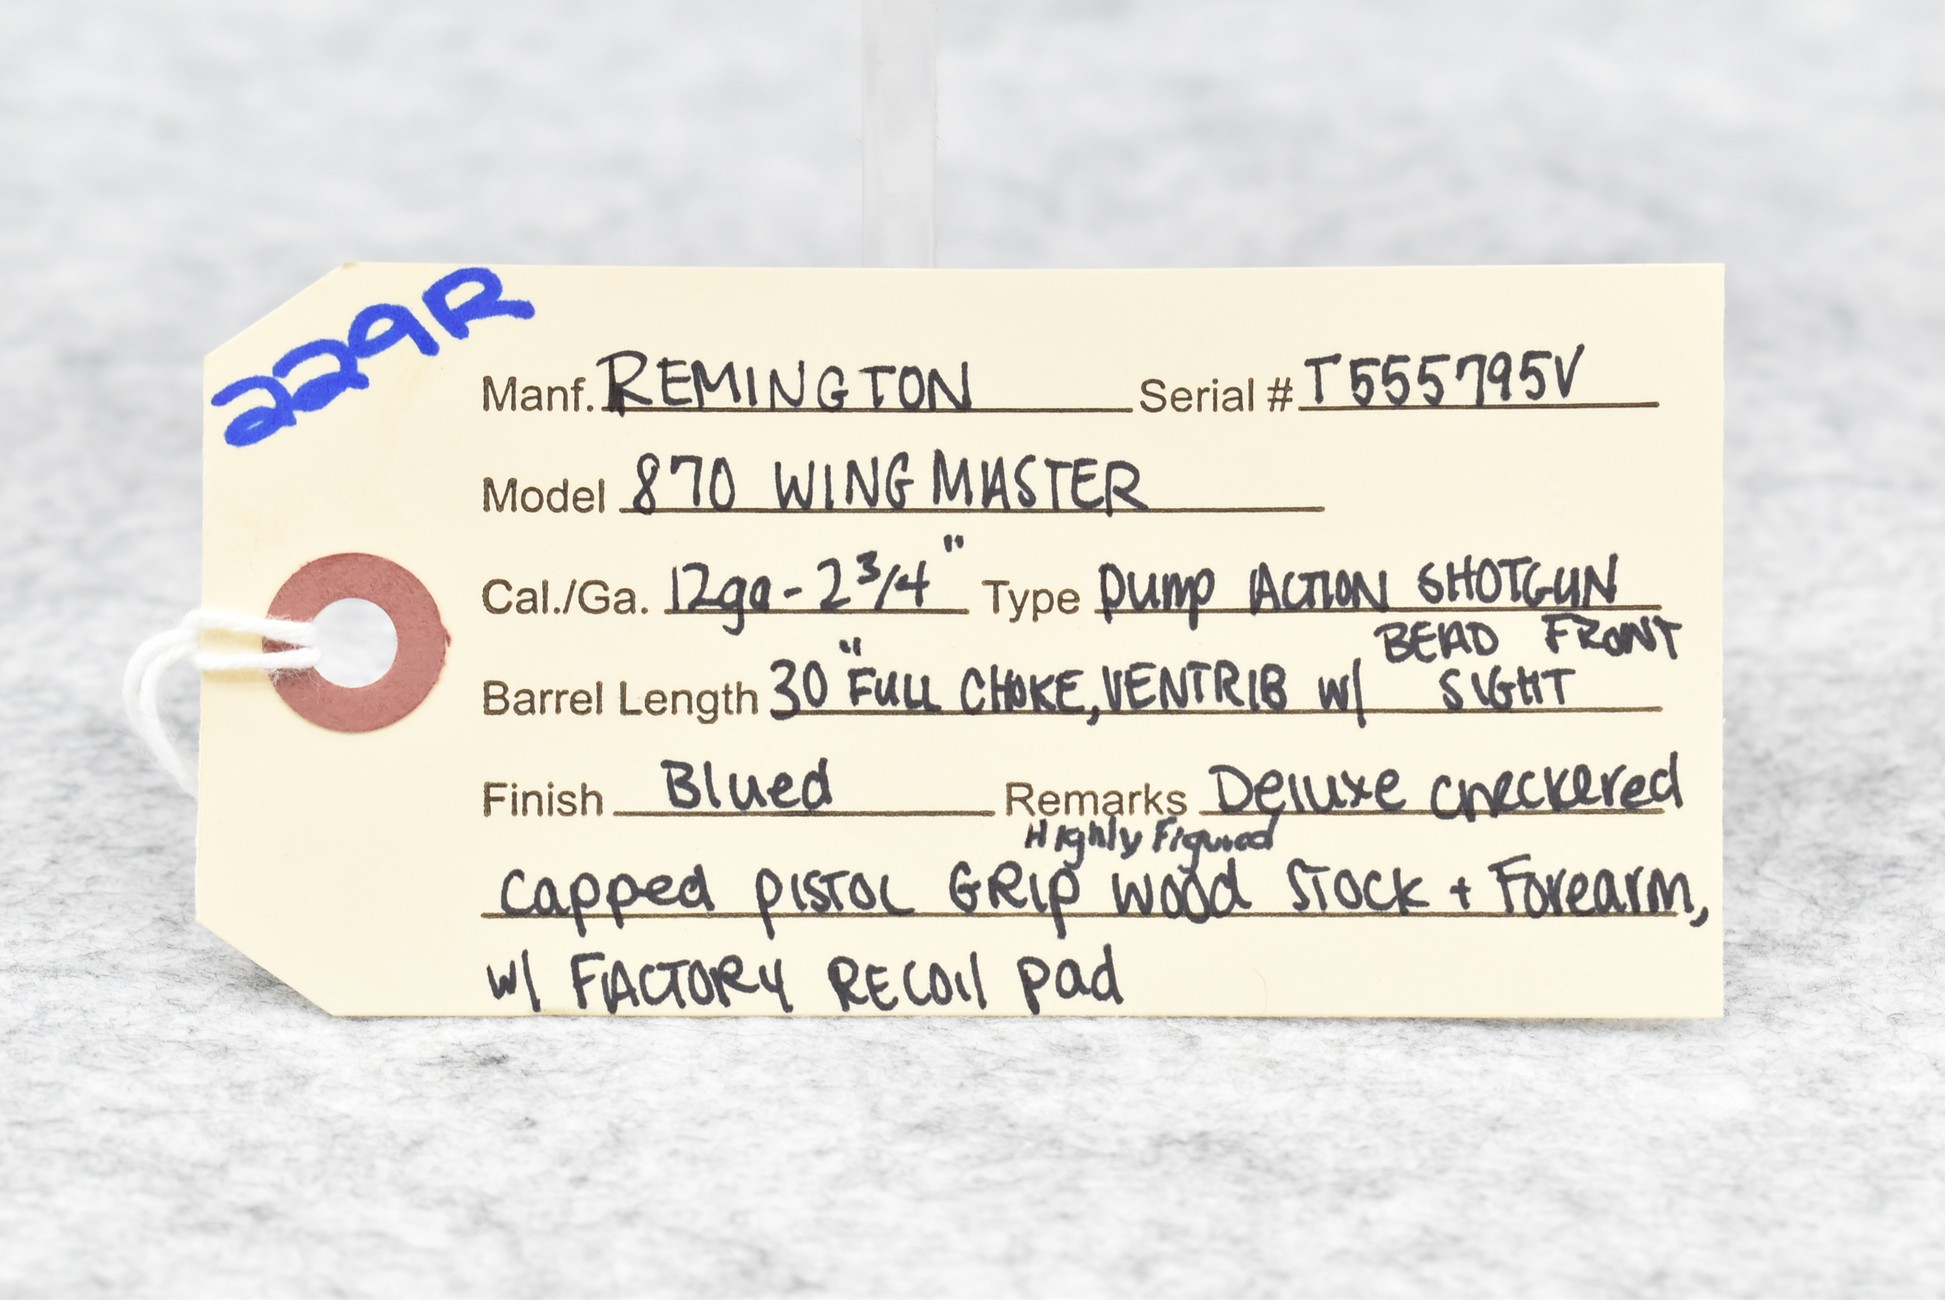 229R
Manf. REMINGTON Serial # T555795V
Model 870 WINGMASTER
Cal./Ga. 12ga - 2 3/4" Type PUMP ACTION SHOTGUN
Barrel Length 30" FULL CHOKE, VENTRIB w/ BEAD FRONT SIGHT
Finish Blued Remarks Deluxe checkered
Highly Figured
capped PISTOL GRIP wood STOCK + Forearm,
w/ FACTORY RECOIL pad